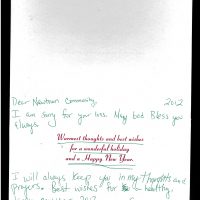 Dear Newtown Community, 2012
I am sorry for your loss. May God Bless you
always.
Warmest thoughts and best wishes
for a wonderful holiday
and a Happy New Year.
I will always keep you in my Thoughts and
prayers. Best wishes for a healthy,